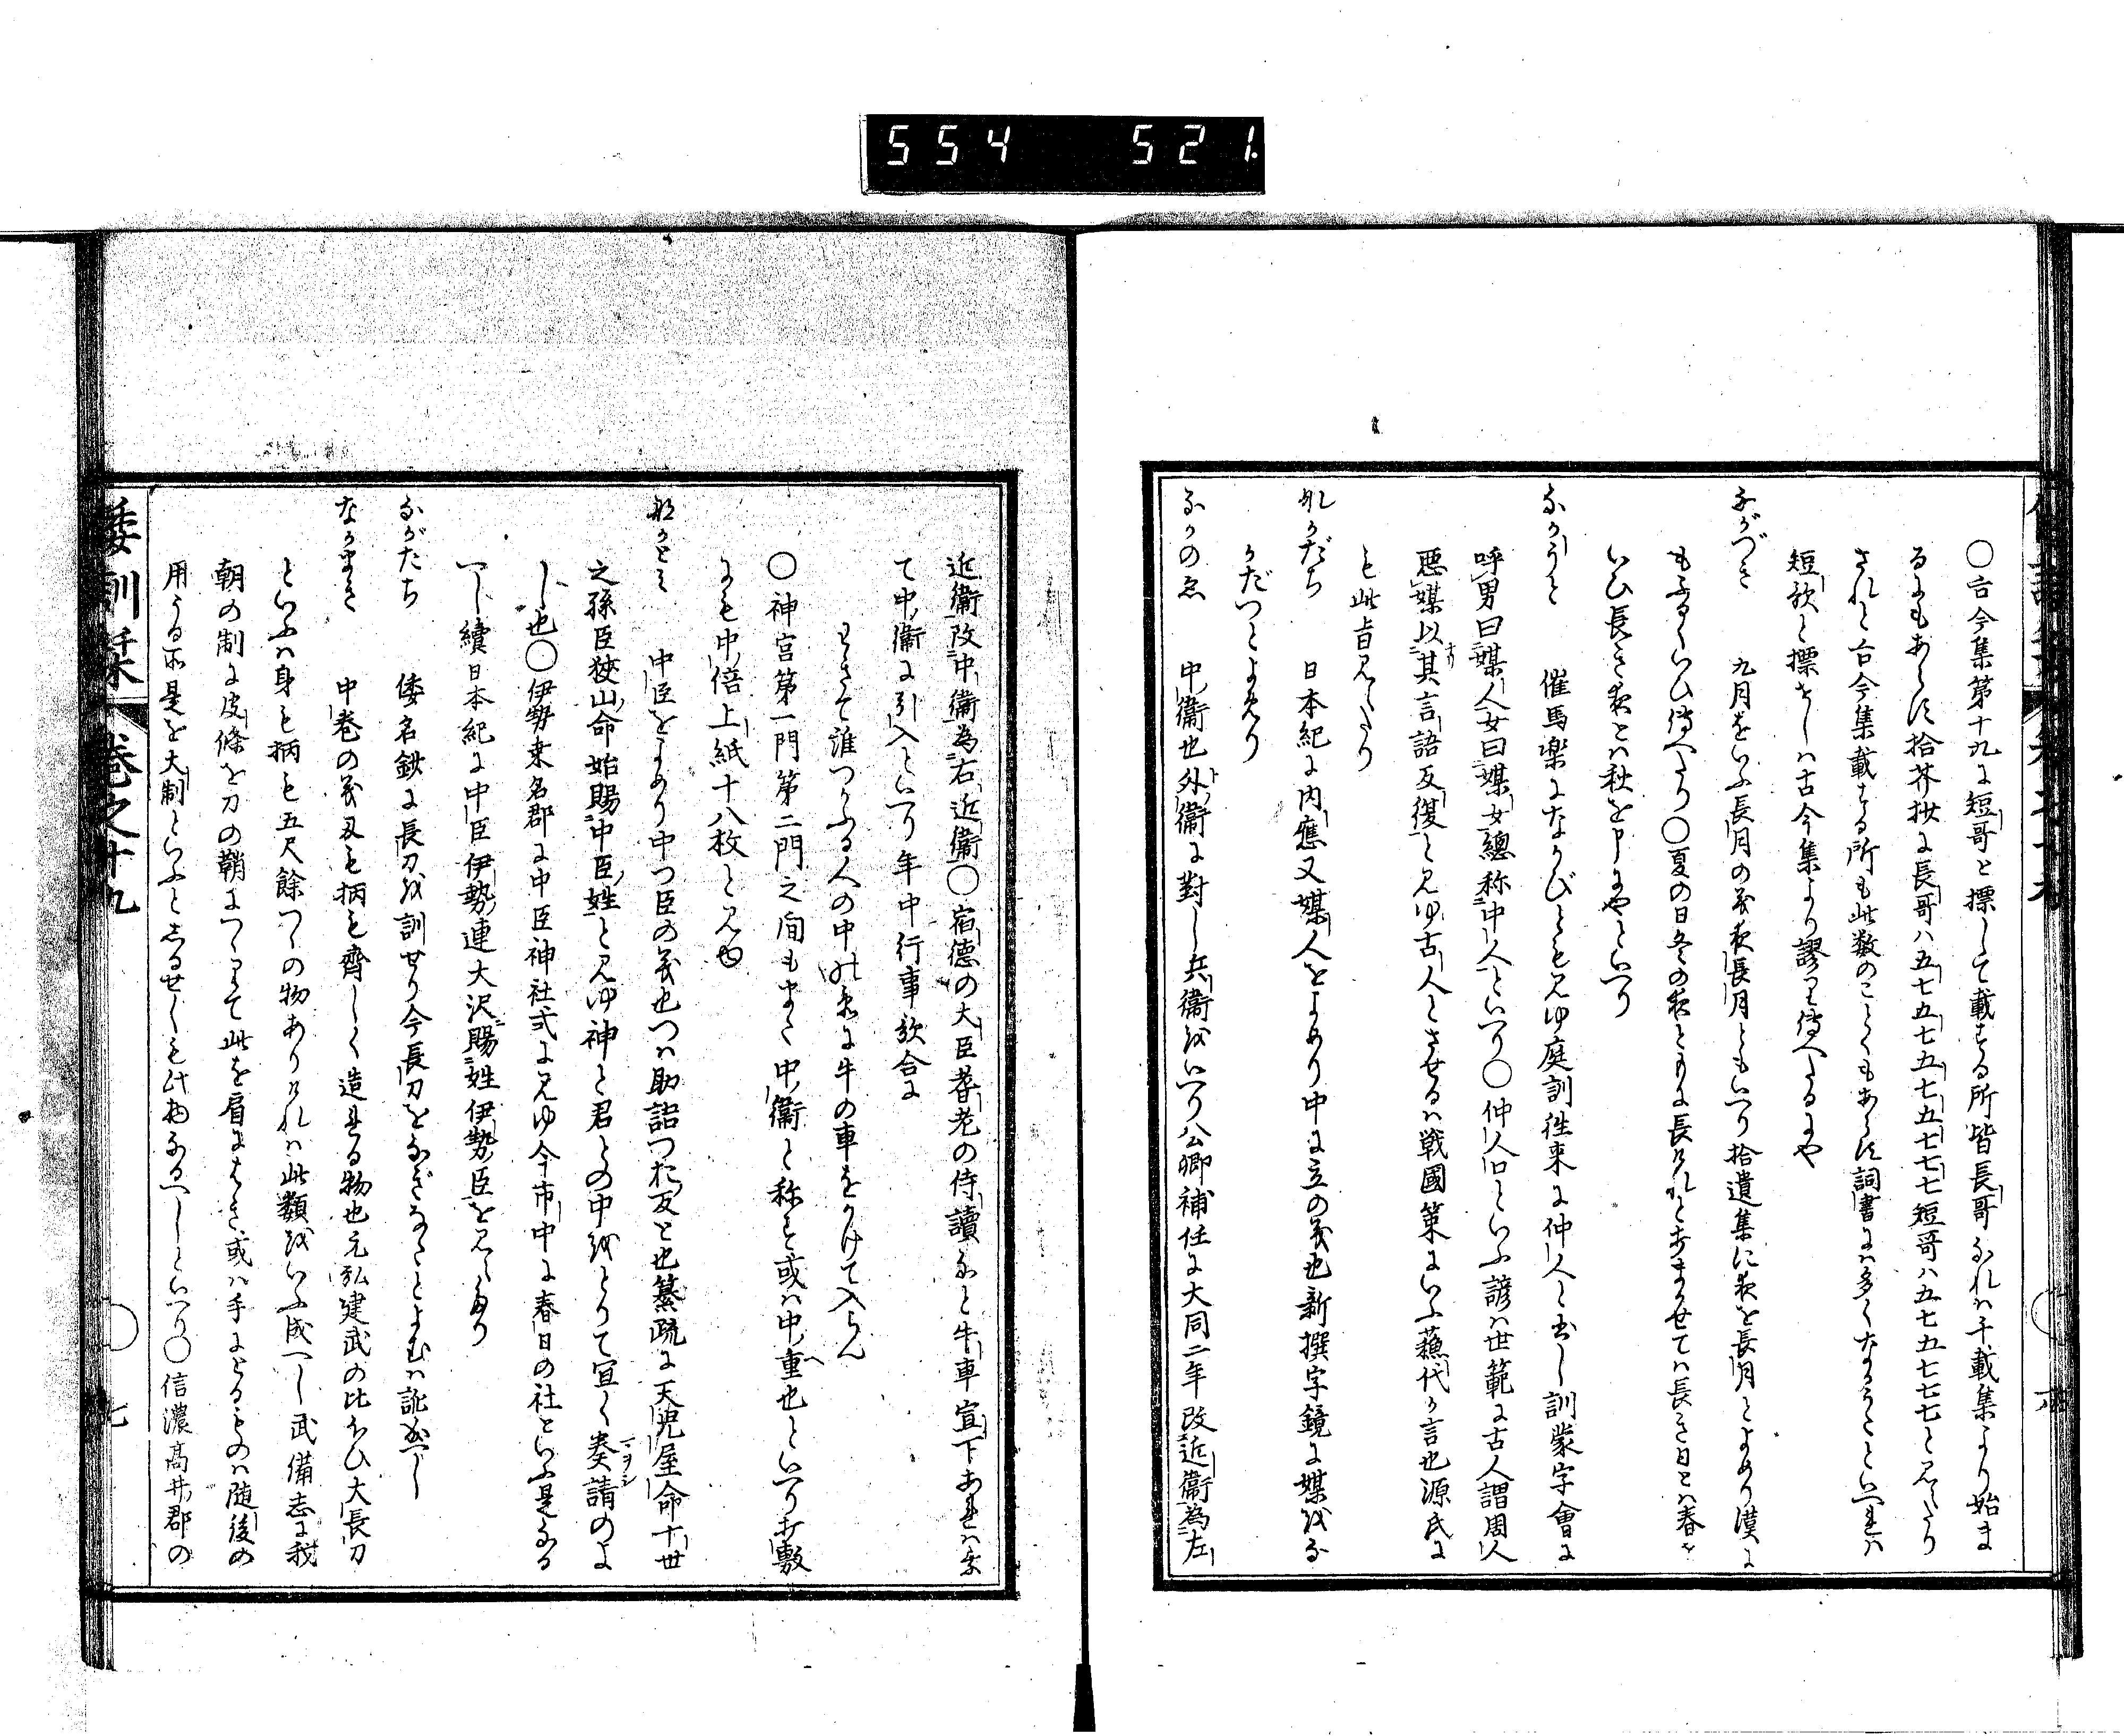 554 521.
○古今集第十九に短哥と標して載する所皆長哥なれは千載集より始ま
るにもあらす拾芥抄に長哥ハ五七五七五七五七七七短哥ハ五七五七七七と見えたり
されと古今集載する所も此数のことくもあらす詞書には多くなかうたといへれは
短歌と標せしは古今集より謬り傳へたるにや
ながづき 九月をいふ長月の義夜長月ともいへり拾遺集に夜を長月とよめり漢に
もふるくいひ傳へたり○夏の日冬の夜ともに長けれとおまかせては長き日とは春を
いひ長き夜とは秋を申にやといへり
なかうと 催馬楽になかびとゝも見ゆ庭訓徃来に仲人と書し訓蒙字會に
呼男曰媒人女曰媒女總称中人といへり○仲人口といふ諺は世範に古人謂周人
惡媒以其言語反復と見ゆ古人とさせるは戦國策にいふ蘓代か言也源氏に
も此旨見えたり
なかだち 日本紀に内應又媒人をよめり中に立の義也新撰字鏡に媒をな
かだつとよめり
なかのゑ 中衞也外衞に對し兵衞をいへり公卿補任に大同二年改近衞為左
近衞改中衞為右近衞○宿德の大臣耆老の侍讀なと牛車宣下あれはま
て中衞に引入といへり年中行事歌合に
わきて誰つかふる人の中のゑに牛の車をかけて入らん
○神宮第一門第二門之間もまた中衞と称す或は中重也といへり打敷
にも中倍上紙十八枚と見ゆ
なかとミ 中臣をよめり中つ臣の義也つは助語つお反と也纂疏に天児屋命十世
之孫臣狭山命始賜中臣姓と見ゆ神と君との中をとりて宜く奏請のよ
し也○伊勢桒名郡に中臣神社式に見ゆ今市中に春日の社といふ是なる
へし續日本紀に中臣伊勢連大沢賜姓伊勢臣と見えたり
ながたち 倭名鈔に長刀を訓せり今長刀をなぎなたとよむは訛なへし
なかまき 中巻の義刄も柄も齊しく造れる物也元弘建武の比ほひ大長刀
といふは身も柄も五尺餘つゝの物ありけれは此類をいふ成へし武備志に我
朝の制に皮條を刀の鞘につゝりて此を肩にはき或は手にとるものは随後の
用うる所是を大制といふとしるせしも此物なるへしといへり○信濃高井郡の
倭訓栞 巻之十九 七